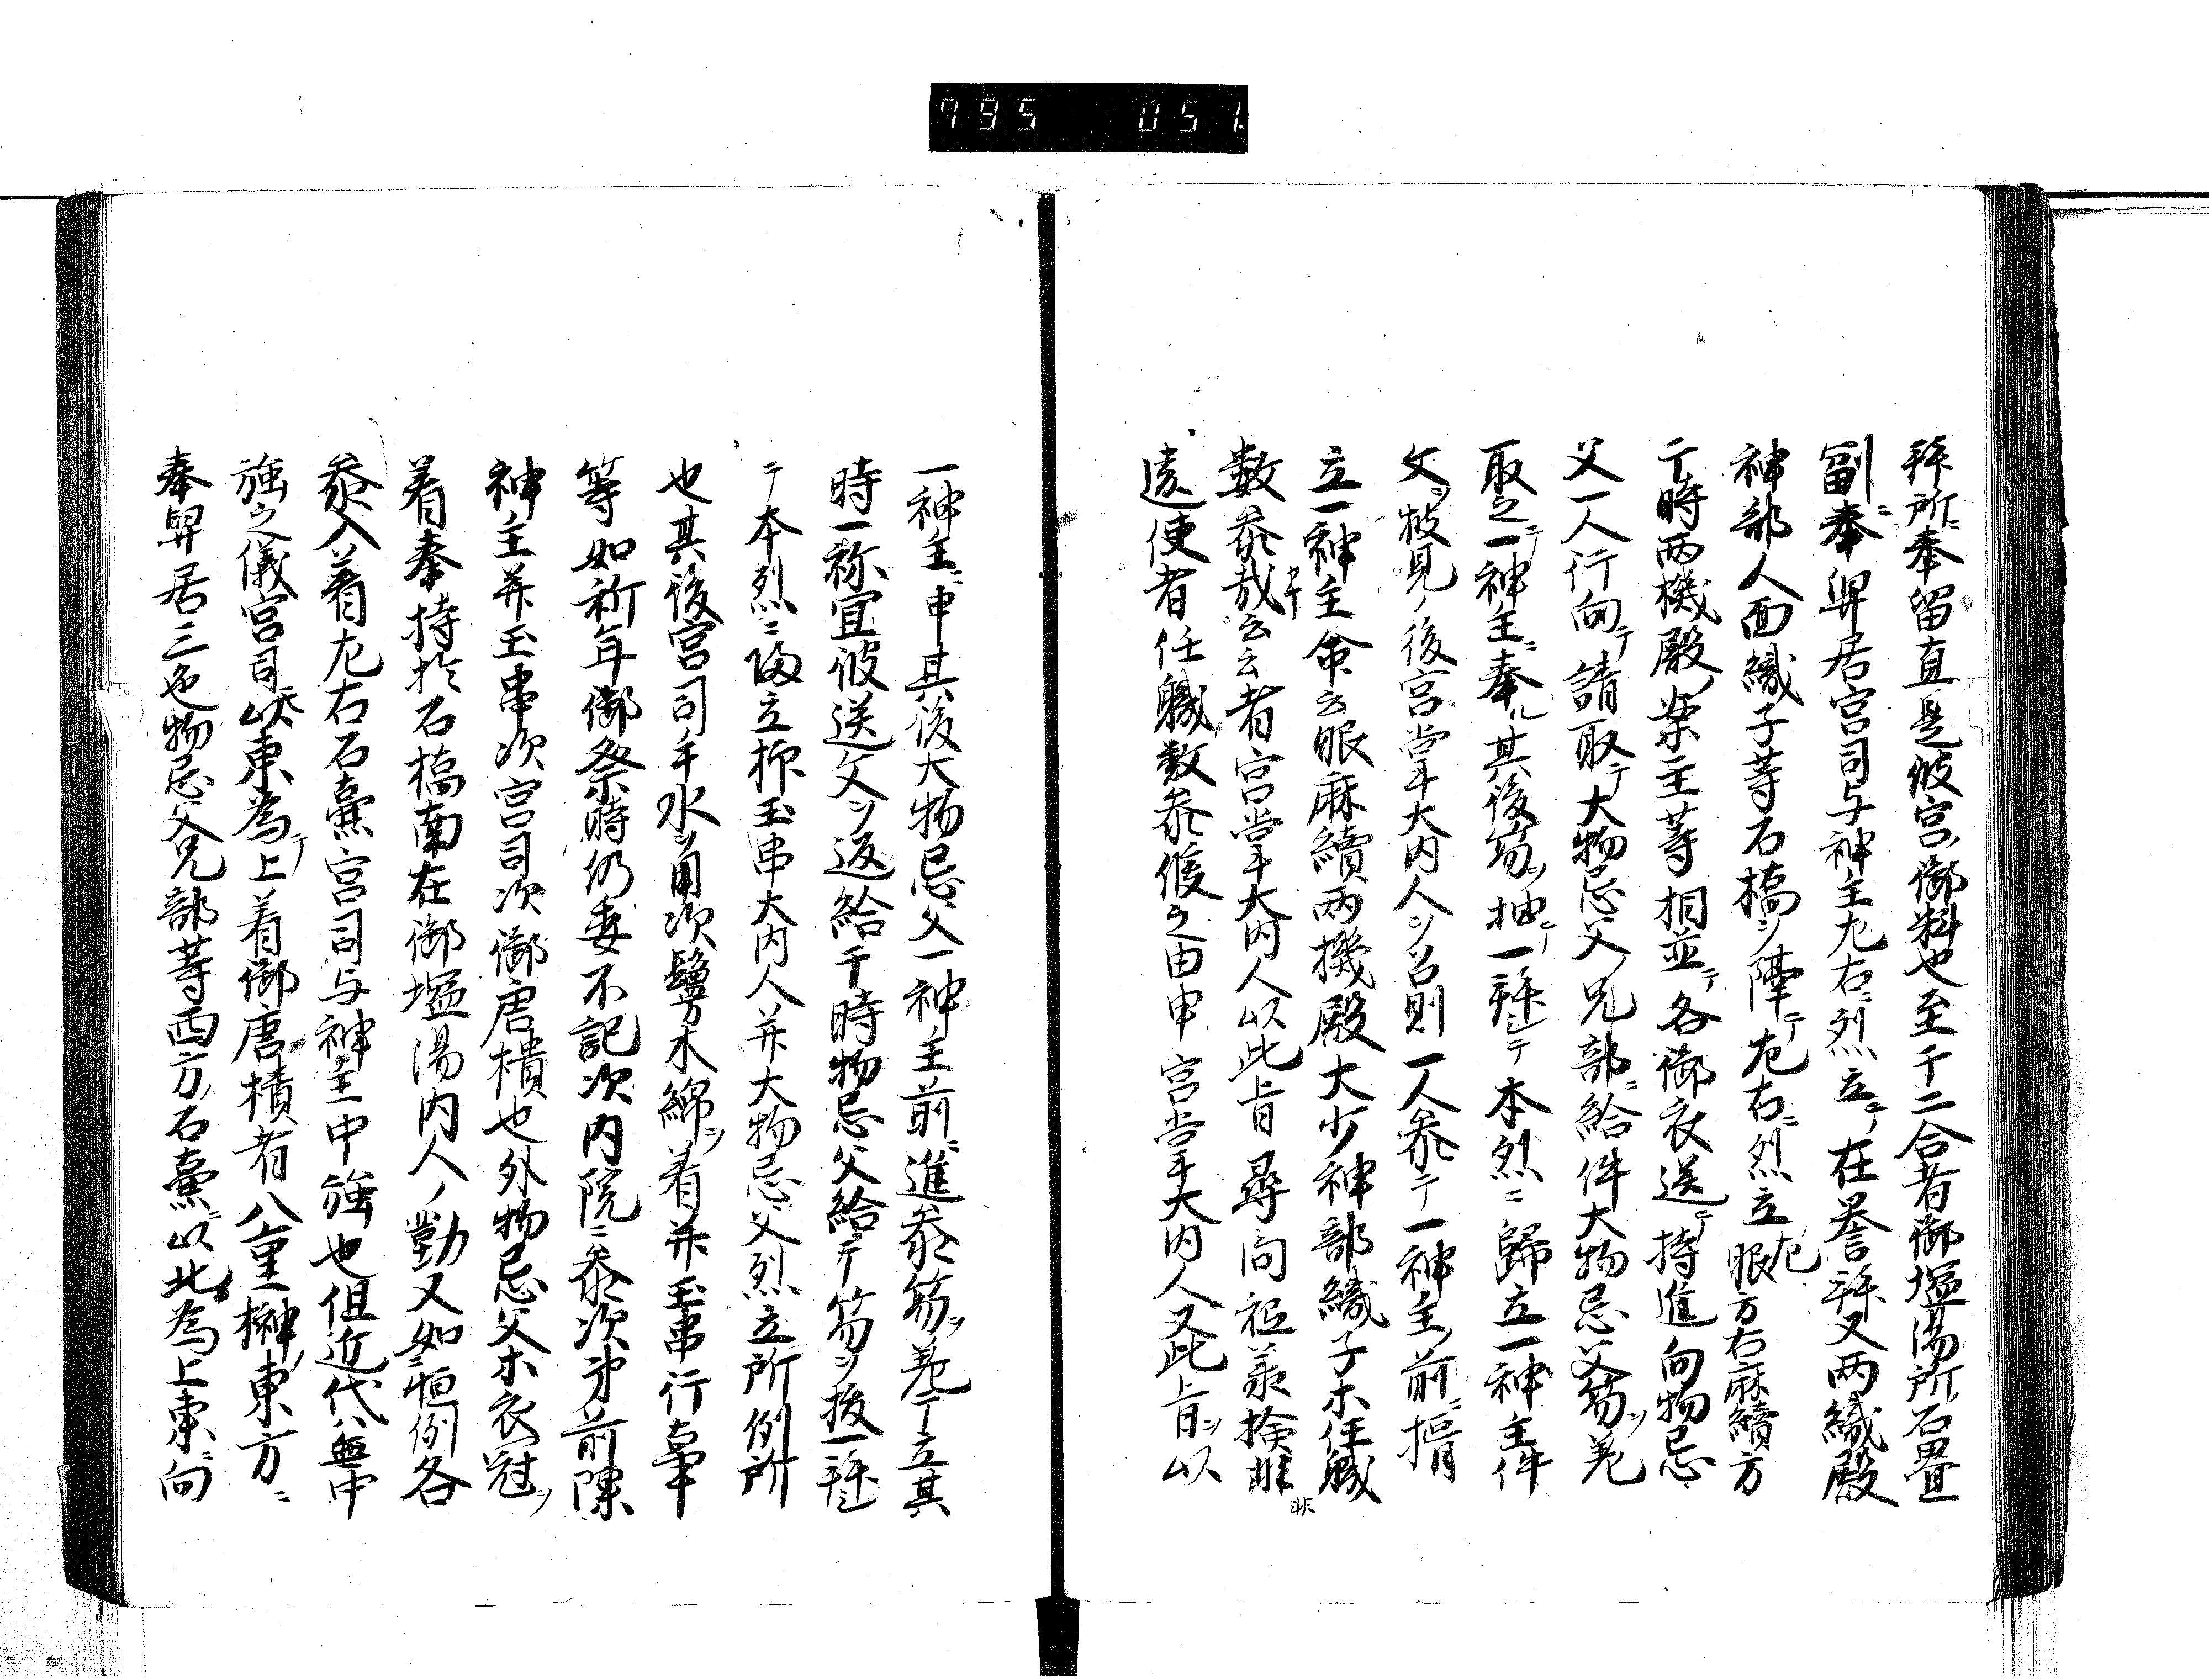 795 051
拜所ニ奉留直是彼宮御料也至于二合者御塩湯所石畳
副ニ奉舁居宮司与神主左右ニ烈立テ在誉拜又両織殿
神部人面織子等石橋ヲ障テ左右ニ烈立左服方右麻續方
于時両機殿ノ案主等相並テ各御衣送テ持進向物忌
父一人行向テ請取テ大物忌父兄部ニ給件大物忌父笏ヲ差
取之テ一神主ニ奉ル其後笏ヲ抽テ一拜シテ本烈ニ歸立一神主件
文ヲ披見ノ後宮掌大内人ヲ召則一人参テ一神主ノ前ニ揖
立一神主命云服麻續両機殿大少神部織子ホ任職
数参哉云云者宮掌大内人以此旨尋向祗羕検非
違使者任職数参候之由申宮掌大内人又此旨ヲ以
一神主ニ申其後大物忌父一神主前ニ進参笏ヲ差テ立其
時一祢宜彼送文ヲ返給于時物忌父給テ笏ヲ抜一拜
テ本烈ニ帰立抑玉串大内人并大物忌父烈立所例所
也其後宮司手水ヲ用次鬘木綿ヲ着并玉串行事
等如祈年御祭時仍委不記次内院ニ参次第前陳
神主并玉串次宮司次御唐樻也外物忌父ホ衣冠ヲ
着奉持於石橋南在御塩湯内人ノ勤又如恒例各
参入着左右石壷宮司与神主中強也但近代ハ無中
強之儀宮司以東為上着御唐樻者八重榊ノ東方ニ
奉舁居三色物忌父兄部等西方石壷ニ以北為上東ニ向